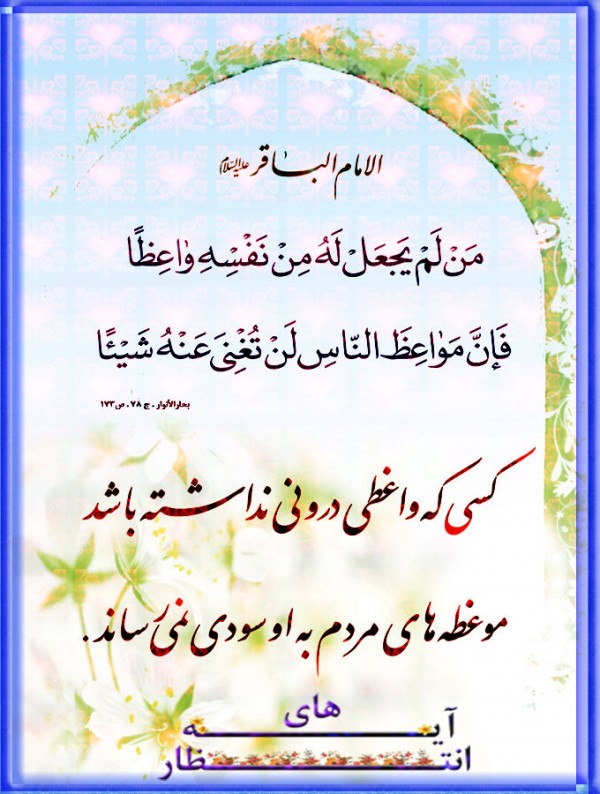 الامام الباقر علیه السلام
مَنْ لَمْ یَجعَلْ لَهُ مِنْ نَفْسِهِ وٰاعِظًا
فَإنَّ مَوٰاعِظَ النّاسِ لَنْ تُغْنِیَ عَنْهُ شَیْئًا
بحارالأنوار ـ ج ۷۸ ـ ص۱۷۳
کسی که واعظی درونی نداشته باشد
موعظه های مردم به او سودی نمی رساند.
آیه های
انتظار